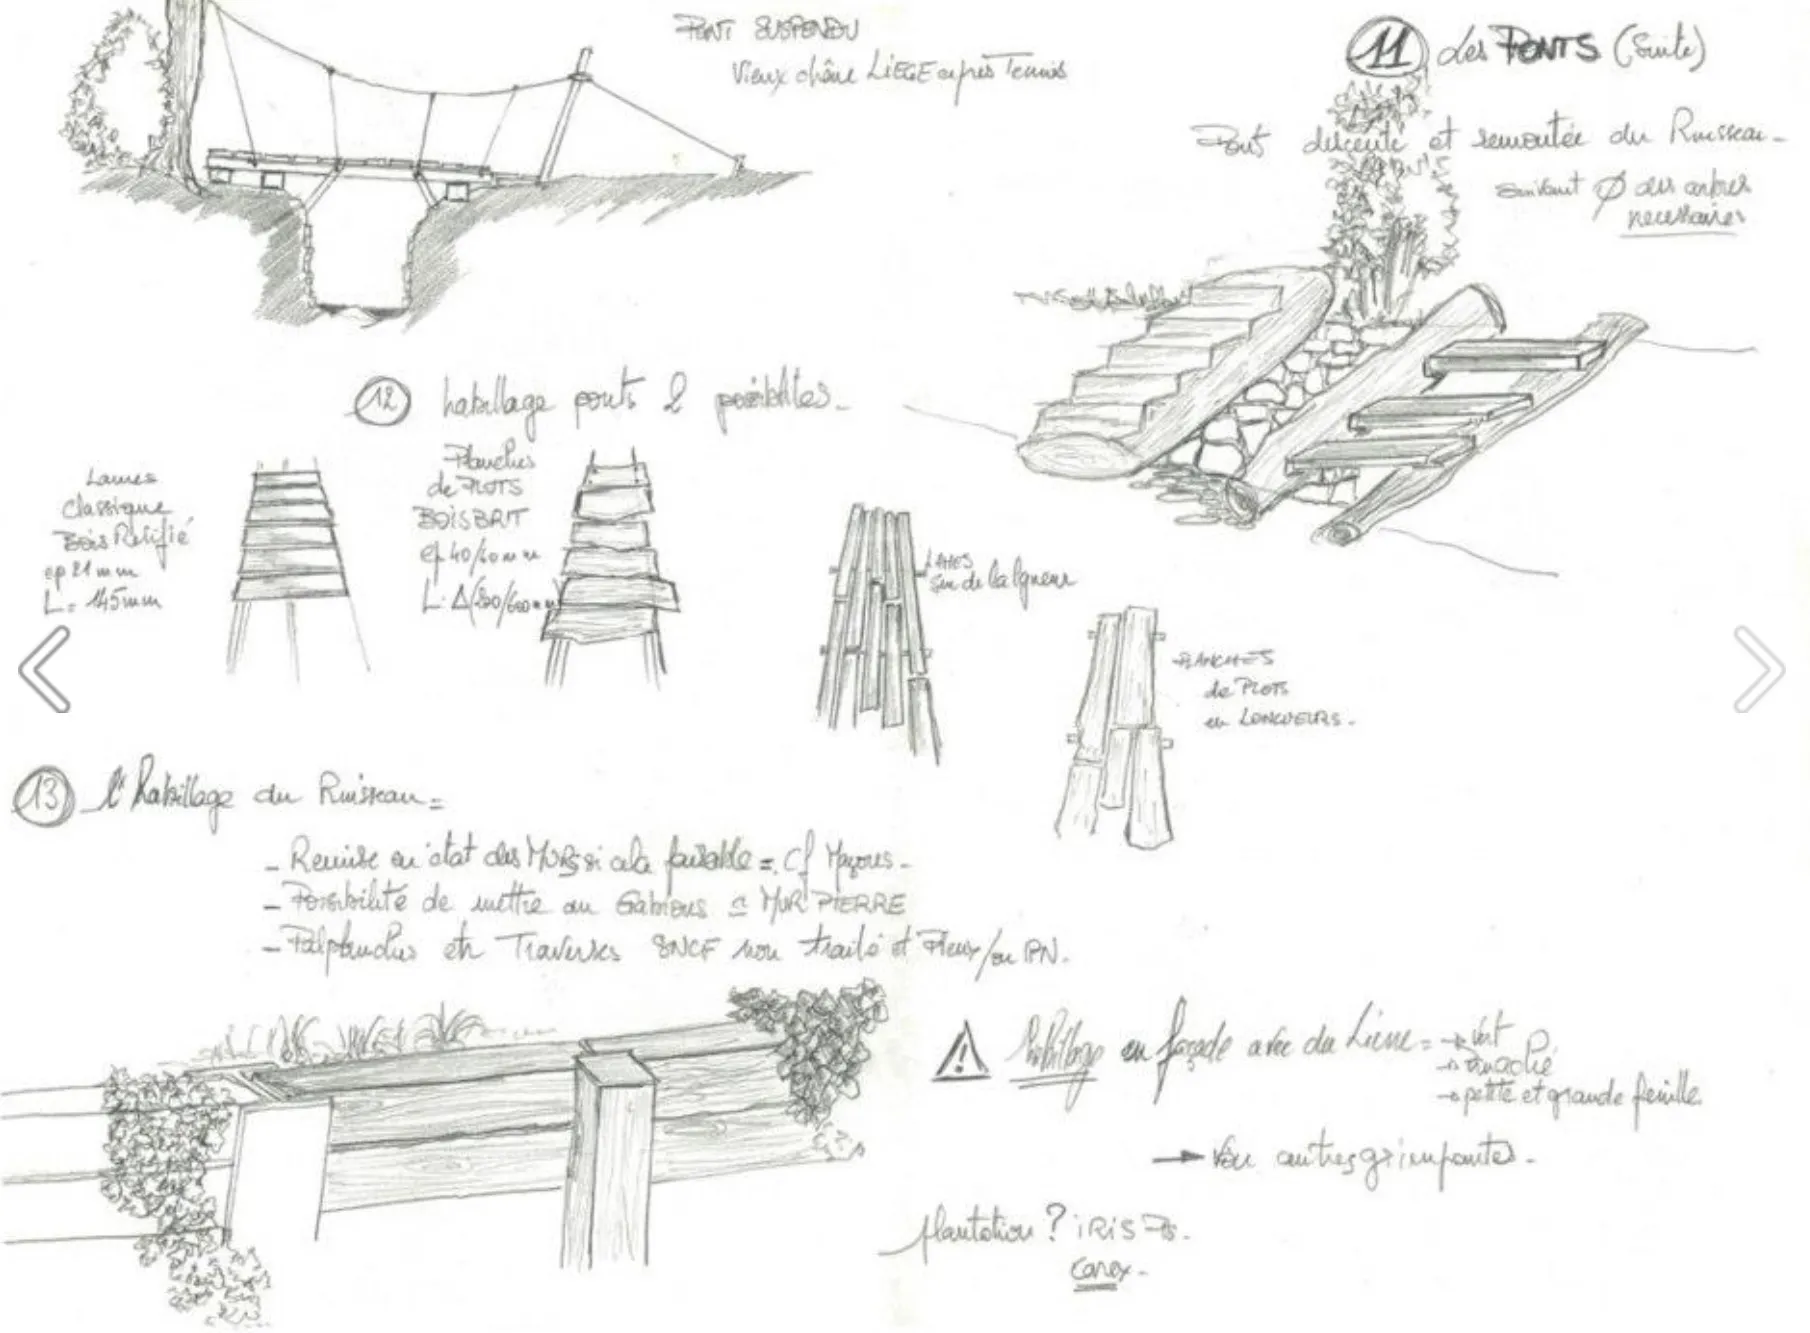 PONT SUSPENDU
Vieux chêne LIEGE après Tennis
11 Les PONTS (Suite)
Pont descente et remontée du Ruisseau -
suivant Ø des arbres
necessaires
12 habillage ponts 2 possibilites -
Lames
Classique
Bois Retifié
ep 21 mm
L = 145mm
Planches
de PLOTS
BOIS BRUT
ep 40/60 mm
LAMES
de la lgueur
PLANCHES
de PLOTS
en LONGUEURS -
13 l'habillage du Ruisseau =
- Remise en état des MURS si cela faisable = Cf Maçons -
- Possibilité de mettre en Gabions = MUR PIERRE
- Palplanches en Traverses SNCF non traité et Pieux/ou IPN -
! Habillage en façade avec du Lierre = → vert
→ panaché
→ petite et grande feuille
→ Voir autres grimpantes -
plantation ? iRIS Ps.
Carex -